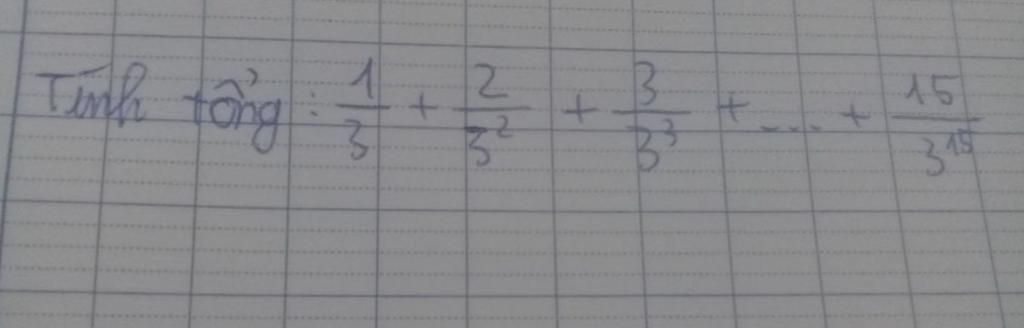 Tính tổng: 1/3 + 2/3² + 3/3³ + ... + 15/3¹⁵